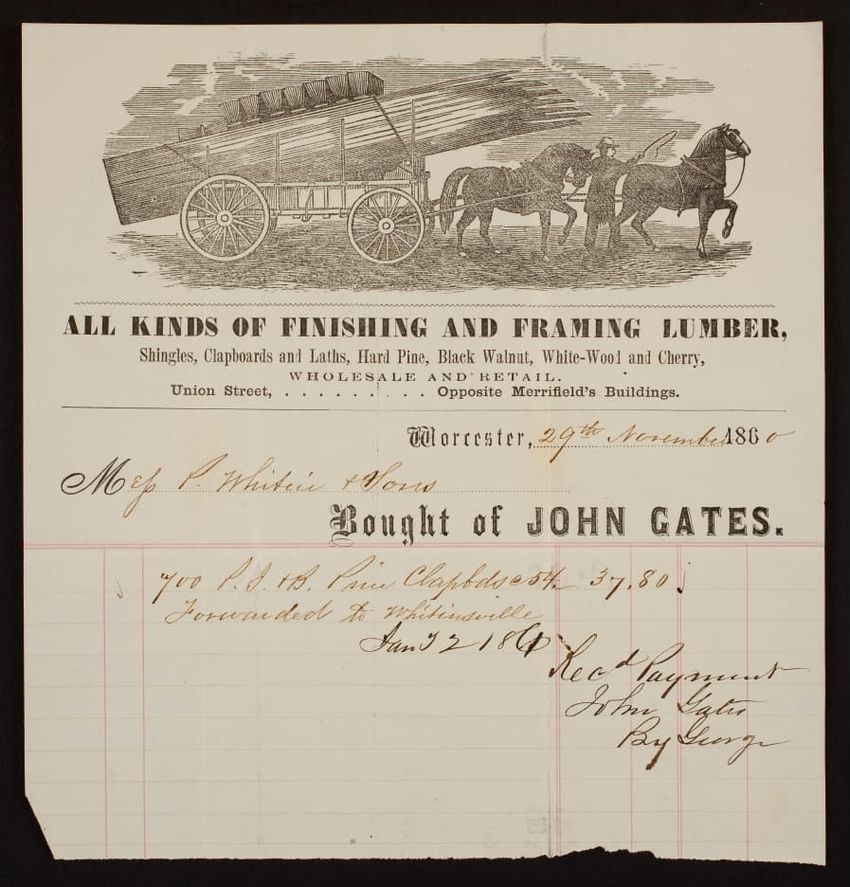 ALL KINDS OF FINISHING AND FRAMING LUMBER,
Shingles, Clapboards and Laths, Hard Pine, Black Walnut, White-Wood and Cherry,
WHOLESALE AND RETAIL.
Union Street, . . . . . . . . . . Opposite Merrifield's Buildings.
Worcester, 29th November 1860
Mess P. Whitin & Sons
Bought of JOHN GATES.
700 P. J. & B. Pine Clapbds @ 54 37.80
Forwarded to Whitinsville
Jany 2 1861
Recd Payment
John Gates
By George